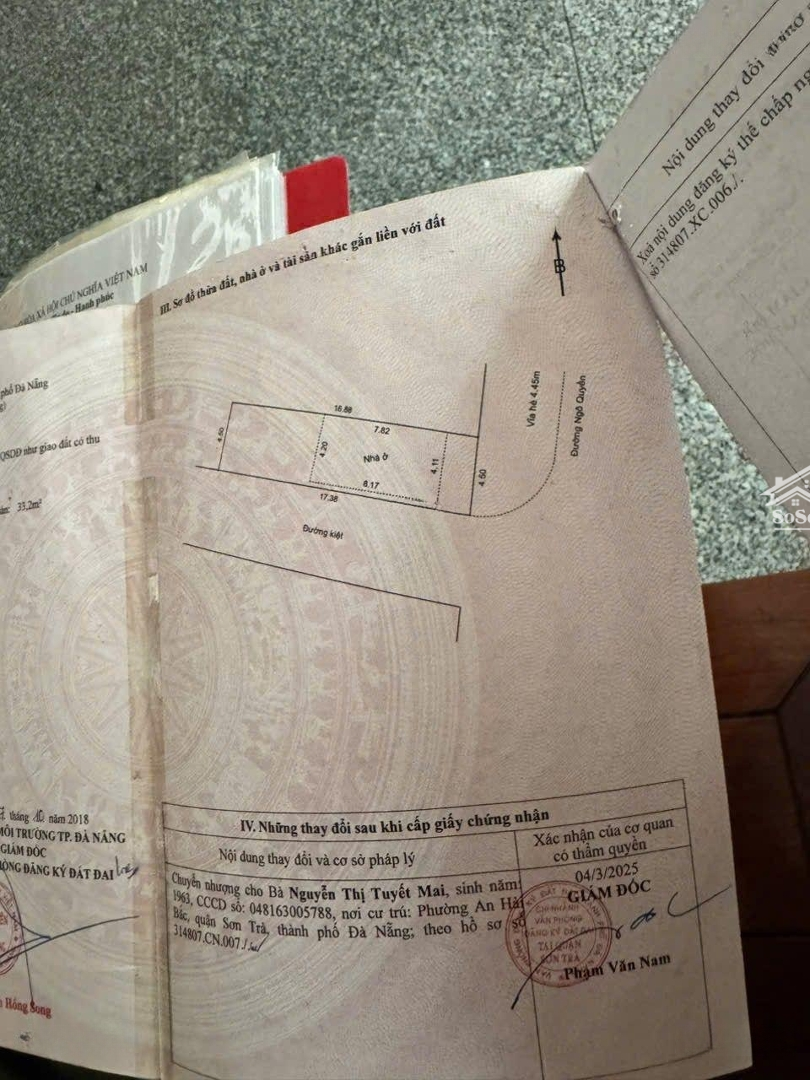 HÒA XÃ HỘI CHỦ NGHĨA VIỆT NAM
- Hạnh phúc
phố Đà Nẵng
QSDĐ như giao đất có thu
33,2m²
tháng 10 năm 2018
MÔI TRƯỜNG TP. ĐÀ NẴNG
GIÁM ĐỐC
ÒNG ĐĂNG KÝ ĐẤT ĐAI
Hồng Song
III. Sơ đồ thửa đất, nhà ở và tài sản khác gắn liền với đất
B
16.88
7.82
4.50
4.20
Nhà ở
4.11
4.50
8.17
17.38
Đường kiệt
Vỉa hè 4.45m
Đường Ngô Quyền
IV. Những thay đổi sau khi cấp giấy chứng nhận
Nội dung thay đổi và cơ sở pháp lý
Xác nhận của cơ quan
có thẩm quyền
Chuyển nhượng cho Bà Nguyễn Thị Tuyết Mai, sinh năm
1963, CCCD số: 048163005788, nơi cư trú: Phường An Hải
Bắc, quận Sơn Trà, thành phố Đà Nẵng; theo hồ sơ số
314807.CN.007./.
04/3/2025
GIÁM ĐỐC
CHI NHÁNH
VĂN PHÒNG
ĐĂNG KÝ ĐẤT ĐAI
TẠI QUẬN
SƠN TRÀ
Phạm Văn Nam
Nội dung thay đổi
Xoá nội dung đăng ký thế chấp
số 314807.XC.006./.